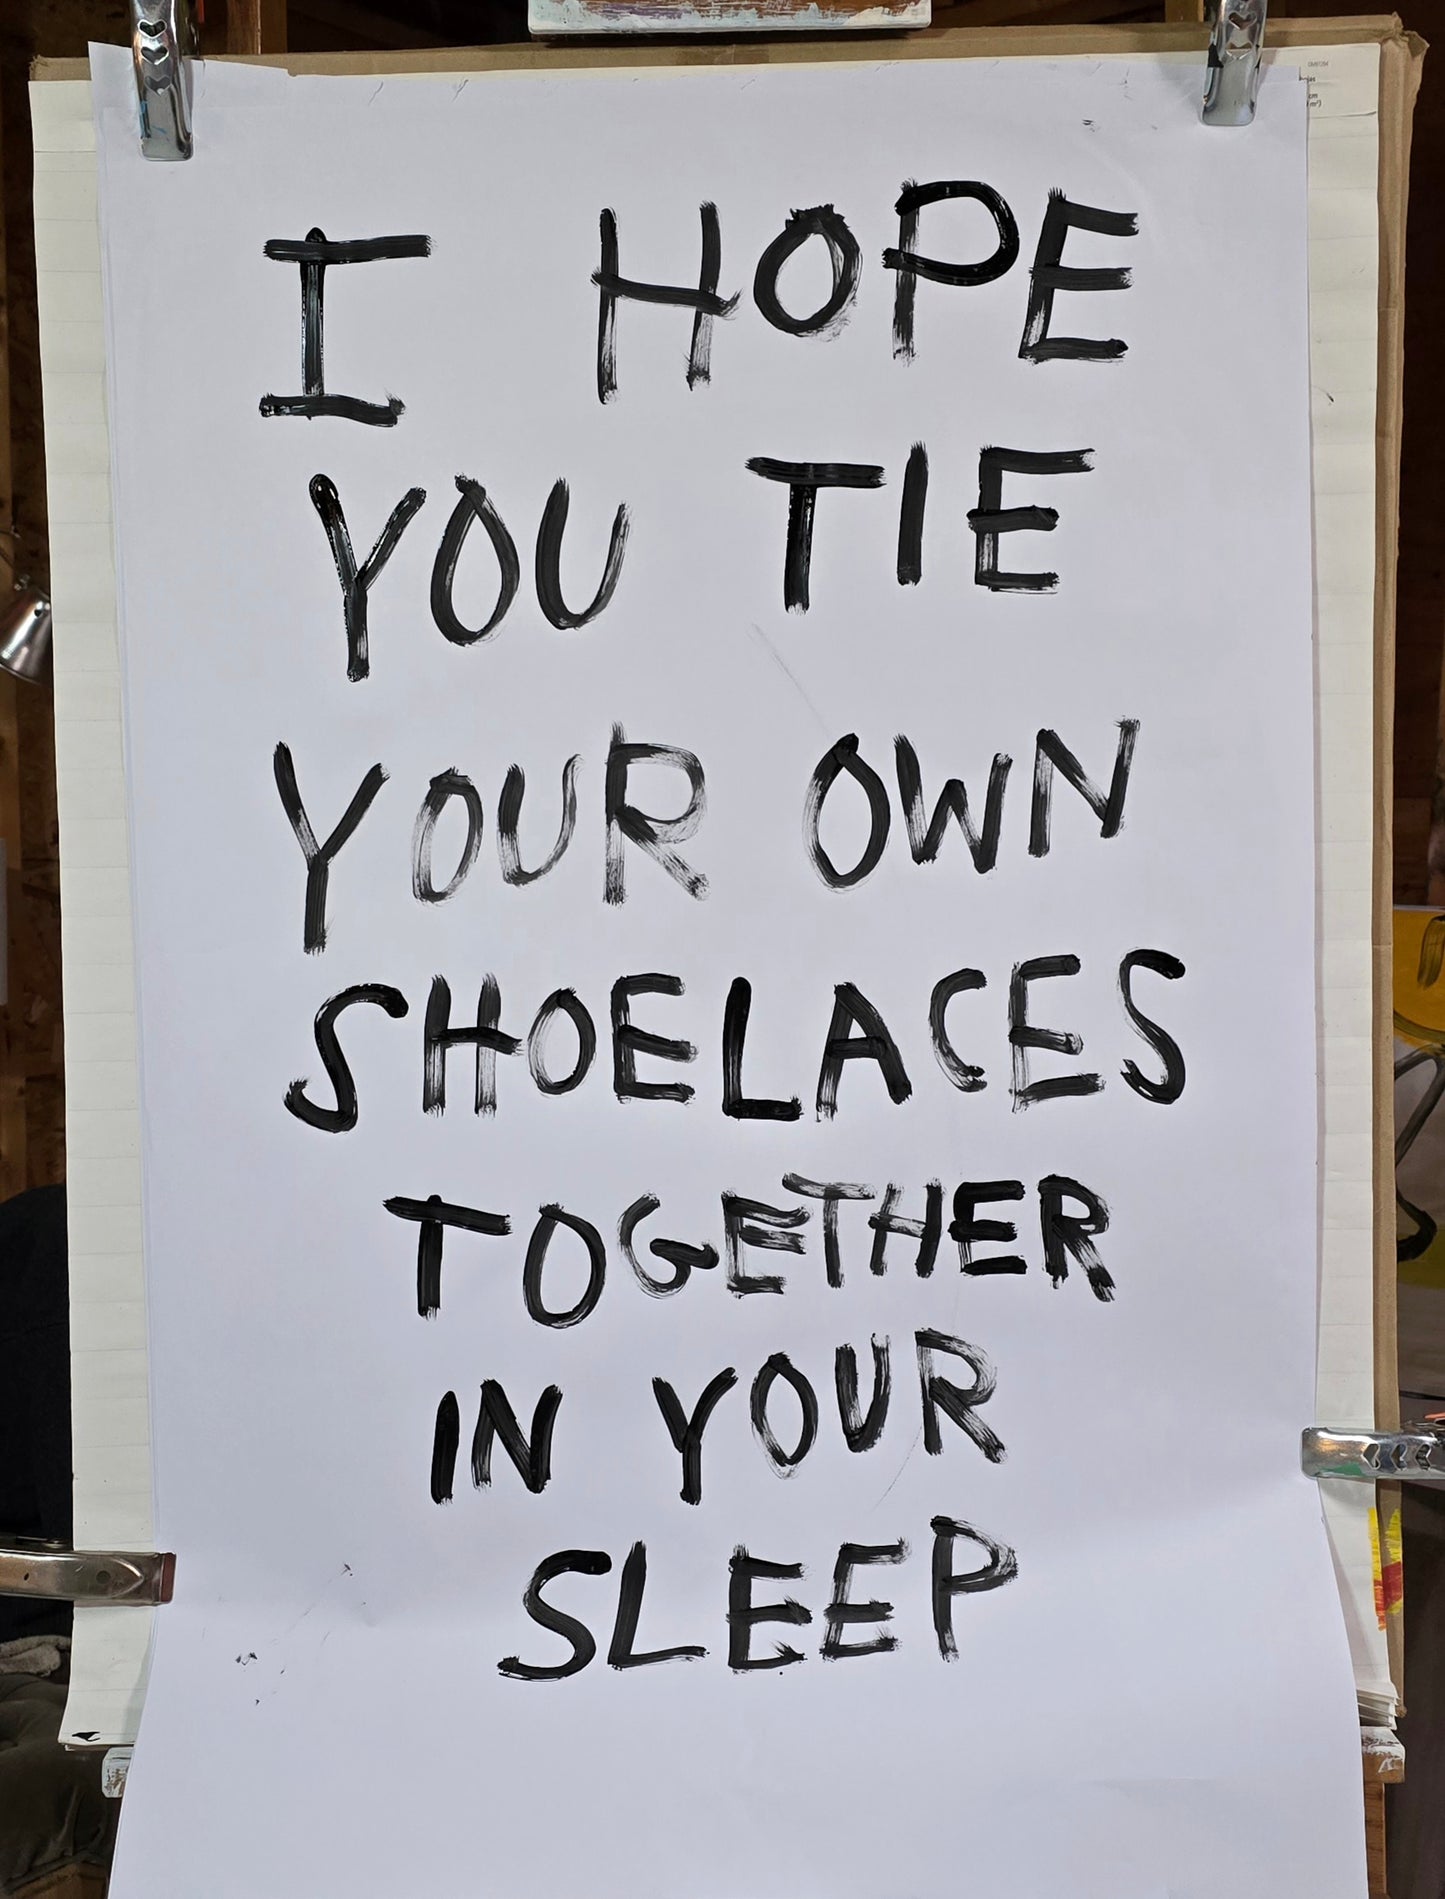 I HOPE
YOU TIE
YOUR OWN
SHOELACES
TOGETHER
IN YOUR
SLEEP